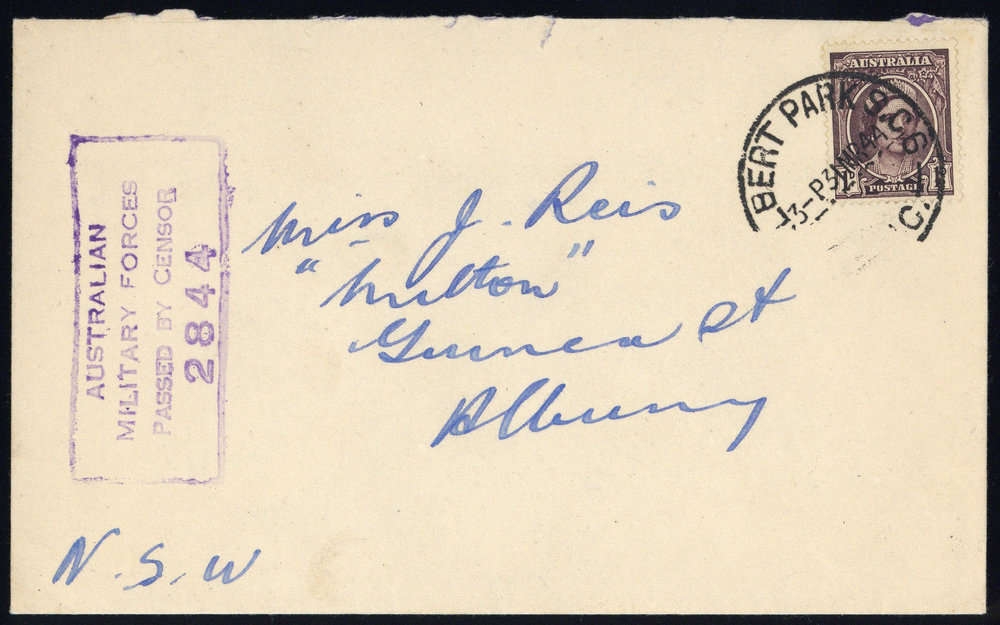 AUSTRALIAN
MILITARY FORCES
PASSED BY CENSOR
2844
AUSTRALIA
POSTAGE
BERT PARK S.C.6
Miss J. Reis
"Milton"
Guinea St
Albury
N.S.W